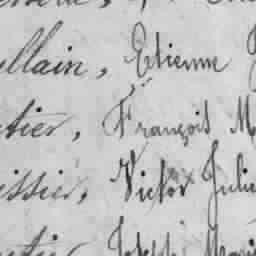 llain, Etienne
tier, François M
issier, Victor Julie
Joseph Mari